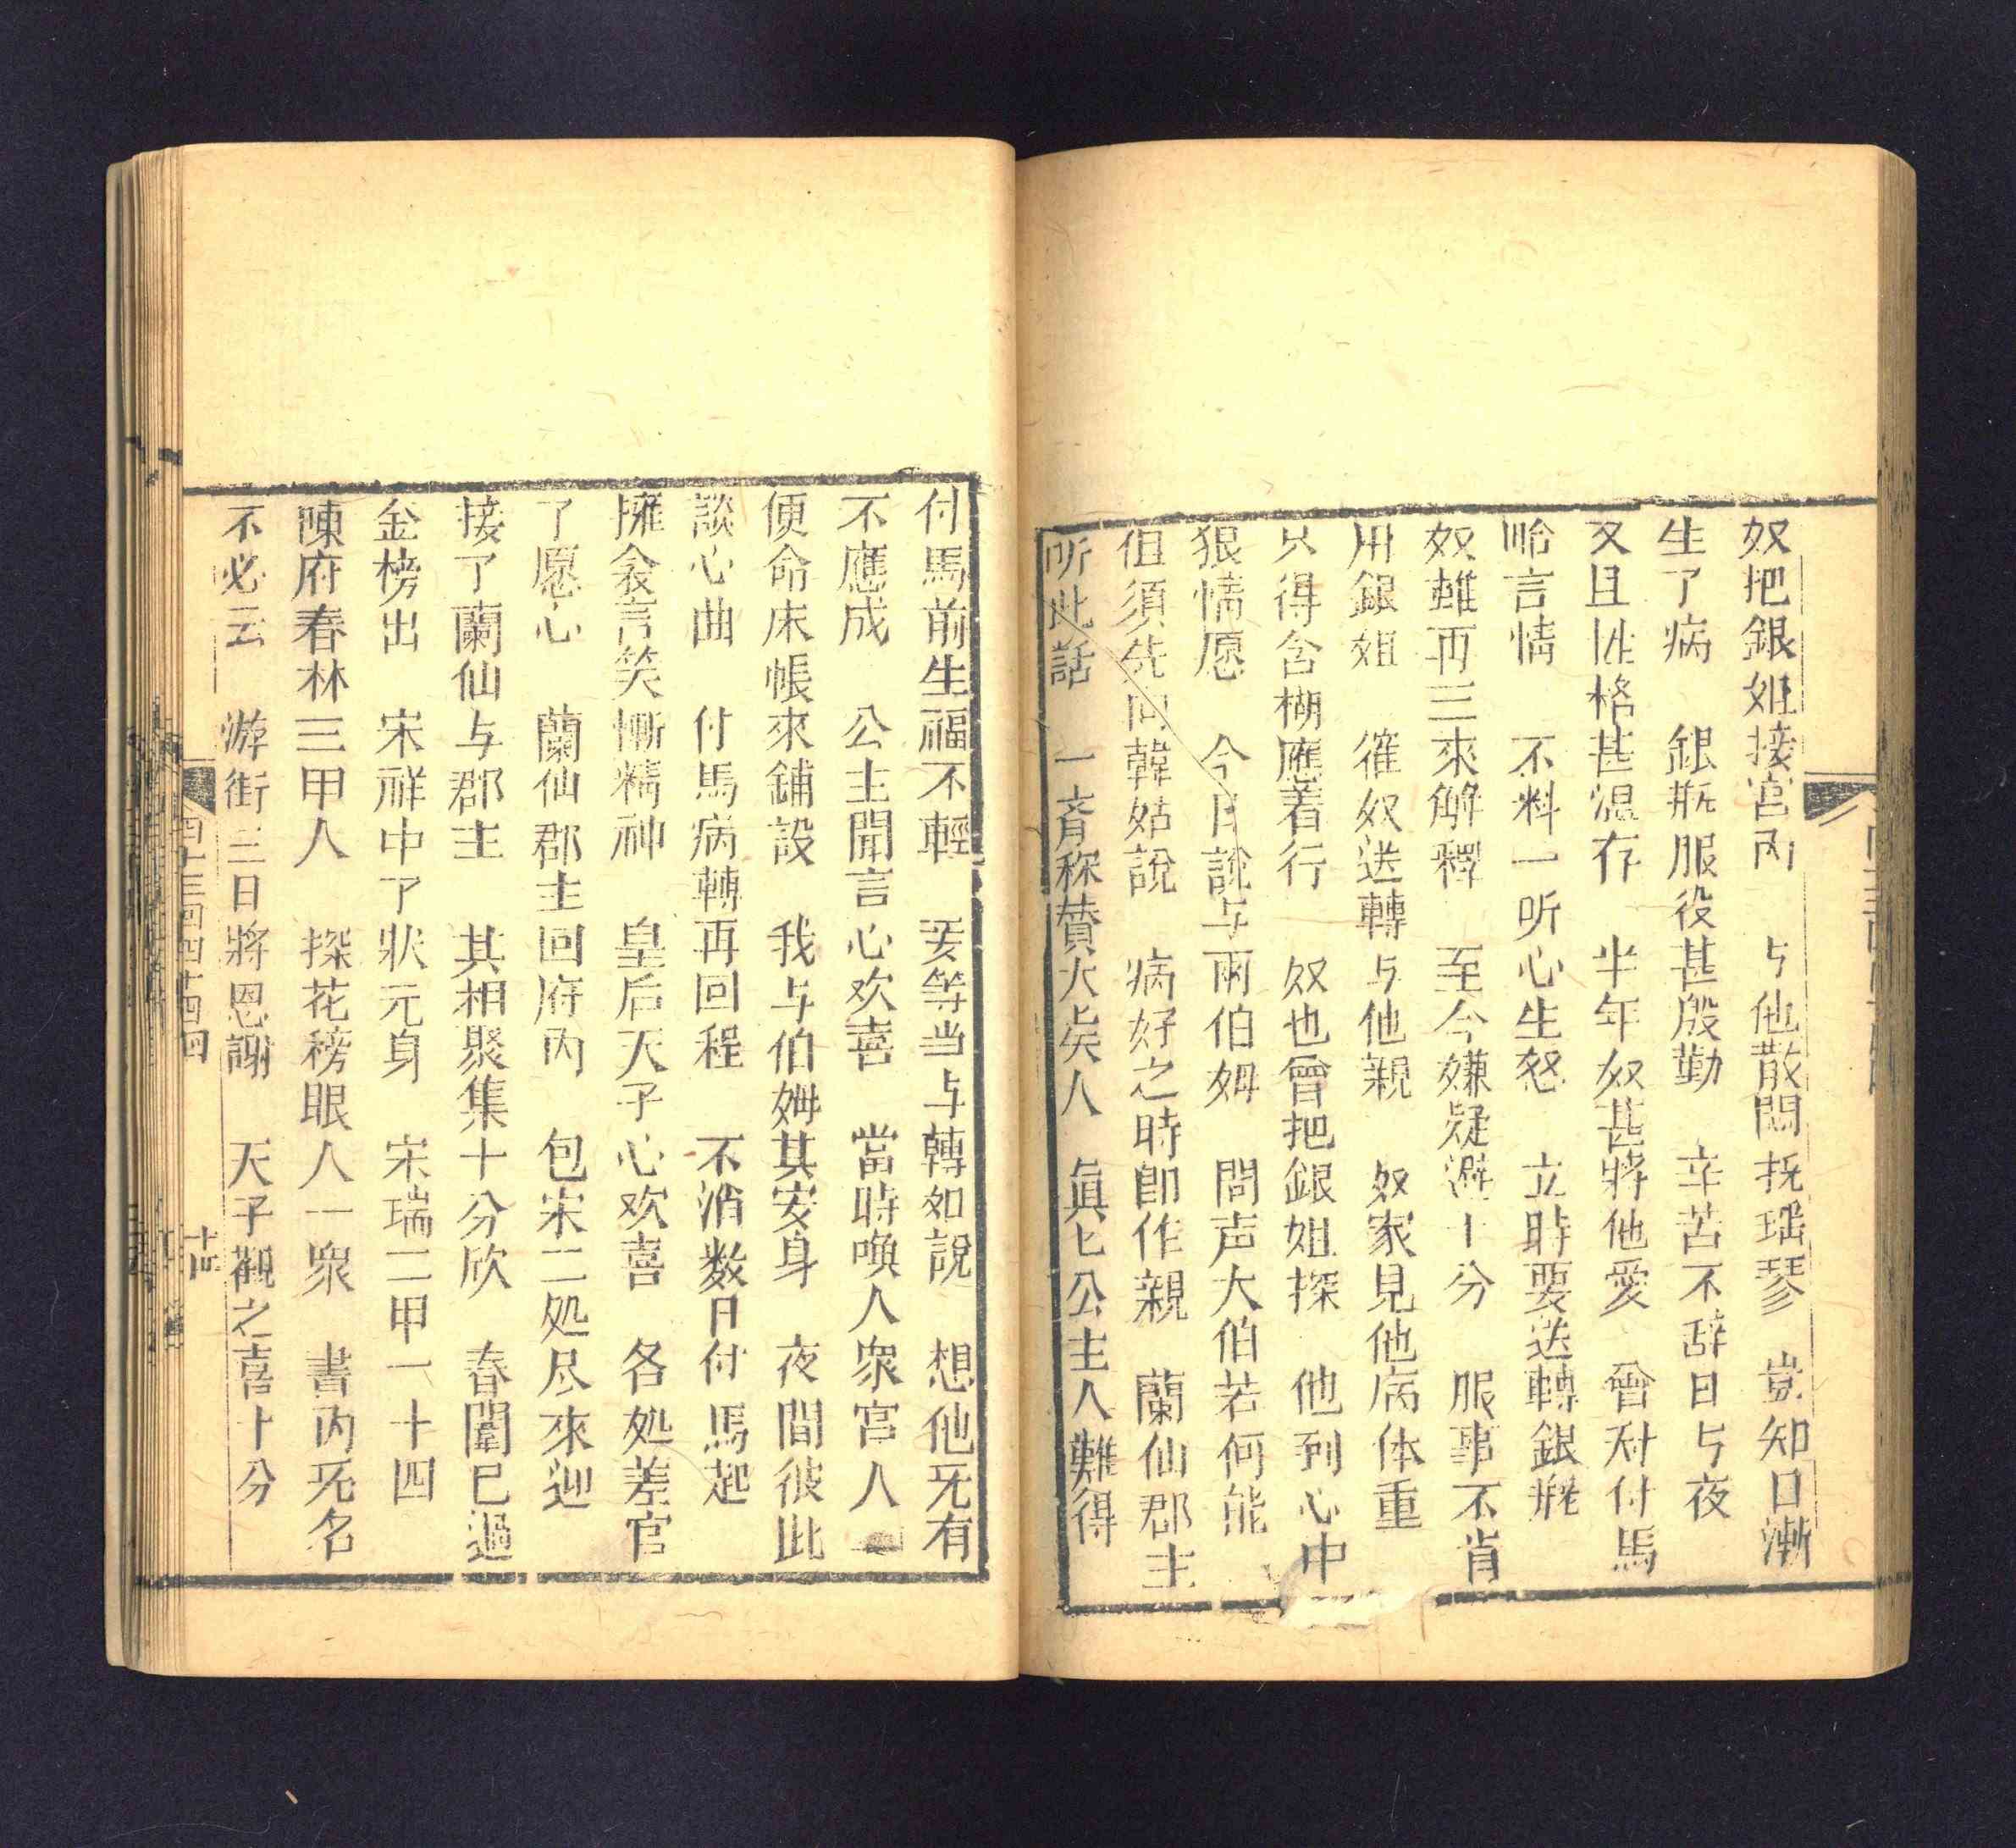 奴把銀姐接宮內　与他散悶抚瑶琴　豈知日漸
生了病　銀瓶服役甚殷勤　辛苦不辞日与夜
又且性格甚温存　半年奴甚將他愛　曾对付馬
哈言情　不料一听心生怒　立時要送轉銀瓶
奴雖再三來解釋　至今嫌疑避十分　服事不肖
用銀姐　催奴送轉与他親　奴家見他病体重
只得含糊應着行　奴也曾把銀姐探　他到心中
狠情愿　今日說与兩伯姆　問声大伯若何能
但須先向韓姑說　病好之時即作親　蘭仙郡主
听此話　一齊称賛大矣人　眞匕公主人難得
付馬前生福不輕　妾等当与轉如說　想他旡有
不應成　公主聞言心欢喜　當時喚人眾宮人
便命床帳來鋪設　我与伯姆其安身　夜間彼此
談心曲　付馬病轉再回程　不消数日付馬起
擁衾言笑慚精神　皇后天子心欢喜　各処差官
了愿心　蘭仙郡主回府內　包宋二処尽來迎
接了蘭仙与郡主　其相聚集十分欣　春闈已過
金榜出　宋祥中了状元身　宋瑞二甲一十四
陳府春林三甲人　探花榜眼人一眾　書內旡名
不必云　游街三日將恩謝　天子觀之喜十分
十四